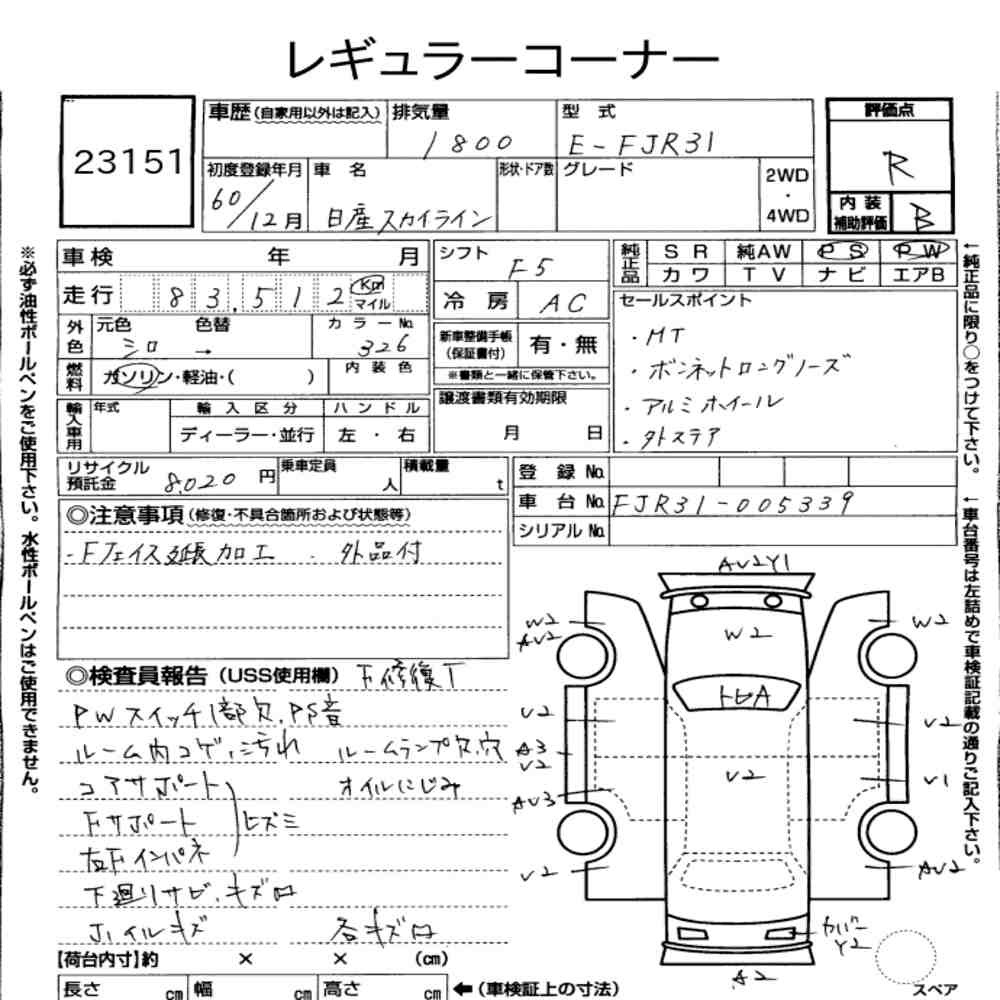 レギュラーコーナー
23151
車歴(自家用以外は記入) 排気量 1800 型式 E-FJR31
評価点 R
初度登録年月 60/12月 車名 日産スカイライン 形状・ドア数 グレード 2WD・4WD
内装補助評価 B
車検 年 月
走行 83,512 Km マイル
外色 元色 シロ 色替 → カラーNo. 326
燃料 ガソリン・軽油・( ) 内装色
輸入車用 年式 輸入区分 ハンドル
ディーラー・並行 左・右
シフト F5
冷房 AC
新車整備手帳(保証書付) 有・無
※書類と一緒に保管下さい。
譲渡書類有効期限
月 日
純正品 SR 純AW PS PW
カワ TV ナビ エアB
セールスポイント
・MT
・ボンネットロングノーズ
・アルミホイール
・外ステア
リサイクル預託金 8,020円 乗車定員 人 積載量 t
登録No.
車台No. FJR31-005339
シリアルNo.
◎注意事項(修復・不具合箇所および状態等)
・Fフェイス延長加工 ・外品付
◎検査員報告(USS使用欄)
PWスイッチ1部欠、PS音
ルーム内コゲ、汚れ ルームランプ欠、穴
コアサポート オイルにじみ
Fサポート ヒズミ
左Fインパネ
下廻りサビ、キズ
キズ
【荷台内寸】約 × × (cm)
長さ cm 幅 cm 高さ cm ←(車検証上の寸法)
AU2Y1
W2 W2 W2
AU2
トビA
U2 U2
A3
U2 U2 U1
AU3
U2 AU2
カバーY2
A2
スペア
※必ず油性ボールペンをご使用下さい。水性ボールペンはご使用できません。
←純正品に限り○をつけて下さい。
←車台番号は左詰めで車検証記載の通りご記入下さい。